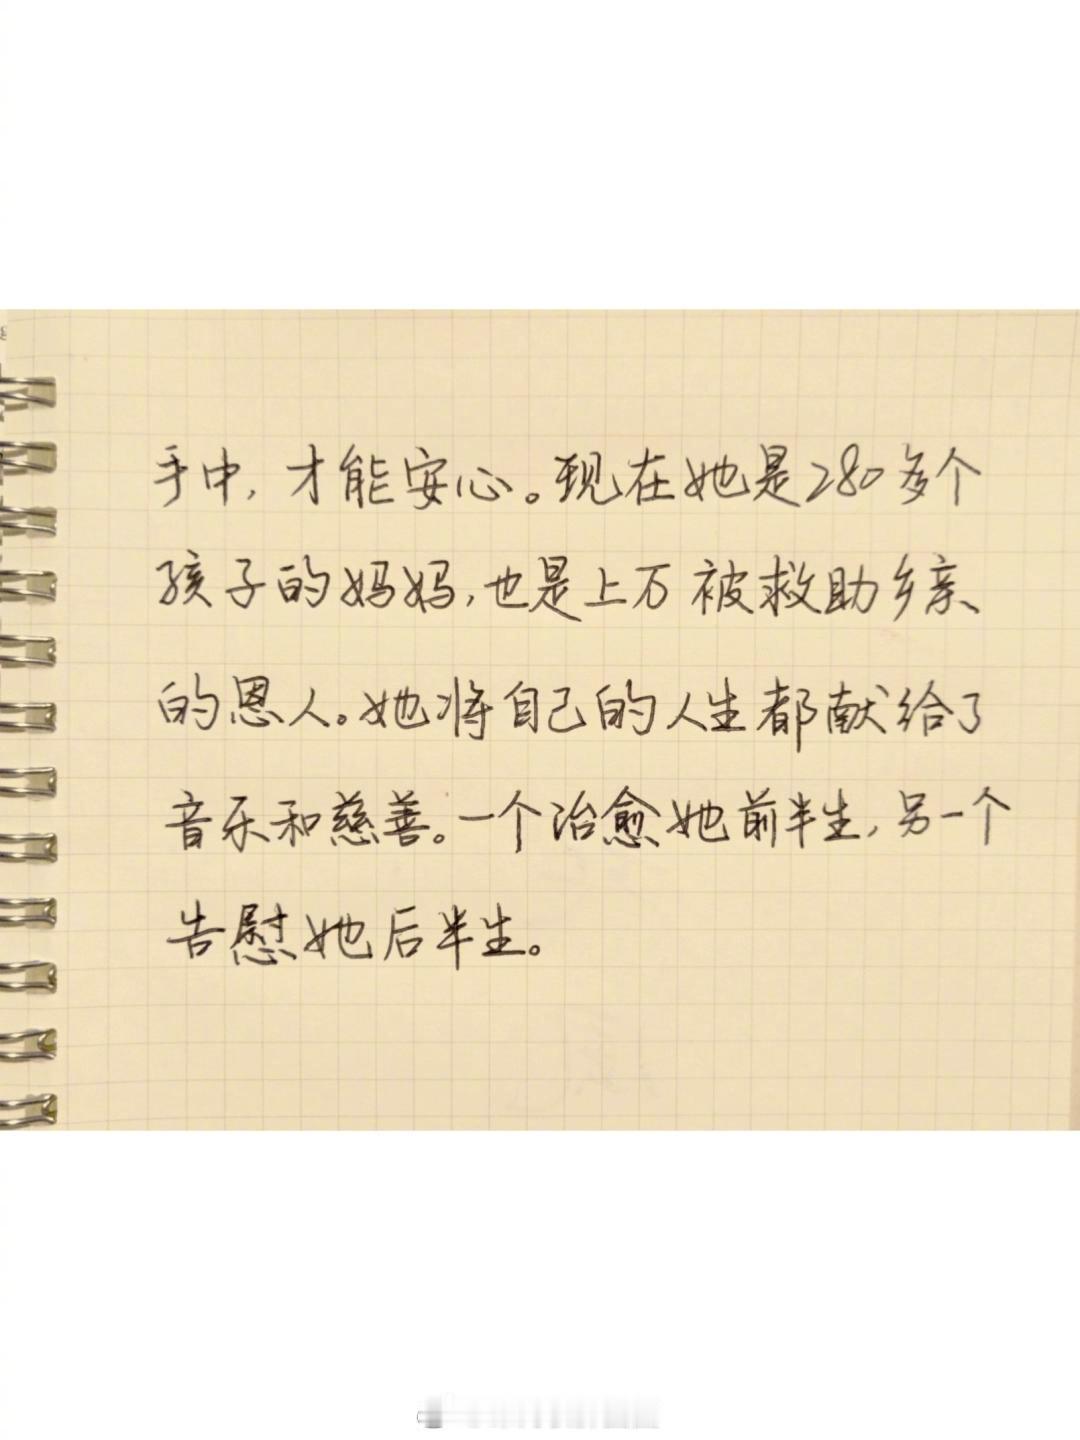 手中，才能安心。现在她是280多个
孩子的妈妈，也是上万被救助乡亲
的恩人。她将自己的人生都献给了
音乐和慈善。一个治愈她前半生，另一个
告慰她后半生。